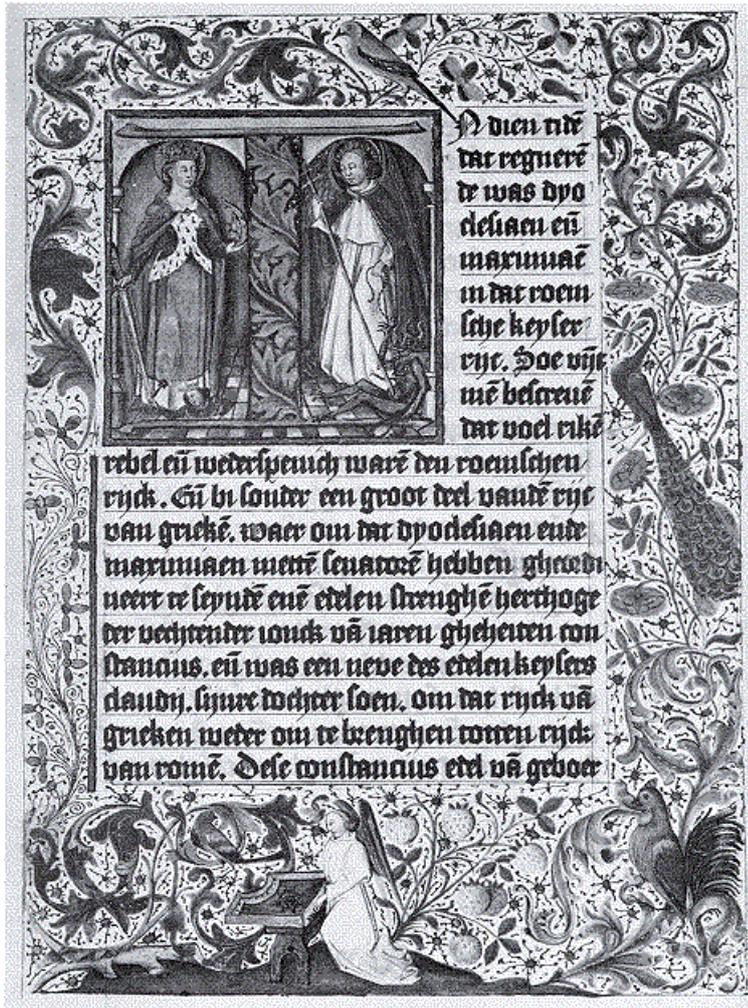 N dien tidē
dat regnerē
de was dyo
clesiaen eñ
maximiaē
in dat roem
sche keyser
rijc. Soe vījt
mē bescreuē
dat voel rikē
rebel eñ wederspenich warē den roemschen
rijck. Eñ bi sonder een groot deel vandē rijc
van griekē. waer om dat dyoclesiaen ende
maximiaen mettē senatorē hebben gheordi
neert te seyndē enē edelen strenghē herthoge
der vechtender ionck vā iaren gheheiten con
stancius. eñ was een neve des edelen keysers
claudij. sijnre dochter soen. om dat rijck vā
grieken weder om te brenghen totten rijck
van romē. Dese constancius edel vā gheboer